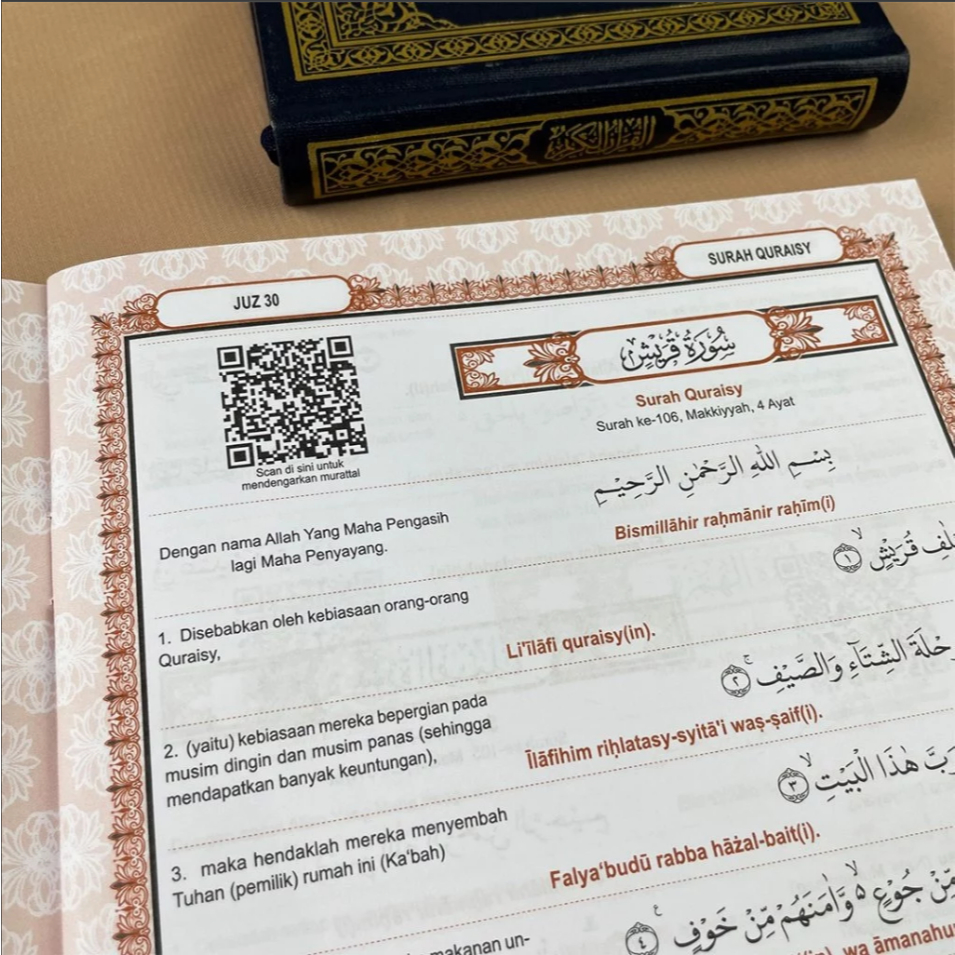 القرآن الكريم
JUZ 30
SURAH QURAISY
سُوْرَةُ قُرَيْشٍ
Surah Quraisy
Surah ke-106, Makkiyyah, 4 Ayat
Scan di sini untuk
mendengarkan murattal
بِسْمِ اللهِ الرَّحْمٰنِ الرَّحِيْمِ
Bismillāhir raḥmānir raḥīm(i)
Dengan nama Allah Yang Maha Pengasih
lagi Maha Penyayang.
قُرَيْشٍۙ ١
1. Disebabkan oleh kebiasaan orang-orang
Quraisy,
Li'īlāfi quraisy(in).
الشِّتَاۤءِ وَالصَّيْفِۚ ٢
2. (yaitu) kebiasaan mereka bepergian pada
musim dingin dan musim panas (sehingga
mendapatkan banyak keuntungan),
Īlāfihim riḥlatasy-syitā'i waṣ-ṣaif(i).
هٰذَا الْبَيْتِۙ ٣
3. maka hendaklah mereka menyembah
Tuhan (pemilik) rumah ini (Ka'bah)
Falya‘budū rabba hāżal-bait(i).
مِّنْ جُوْعٍ ەۙ وَّاٰمَنَهُمْ مِّنْ خَوْفٍ ࣖ ٤
makanan un-
wa āmanahu